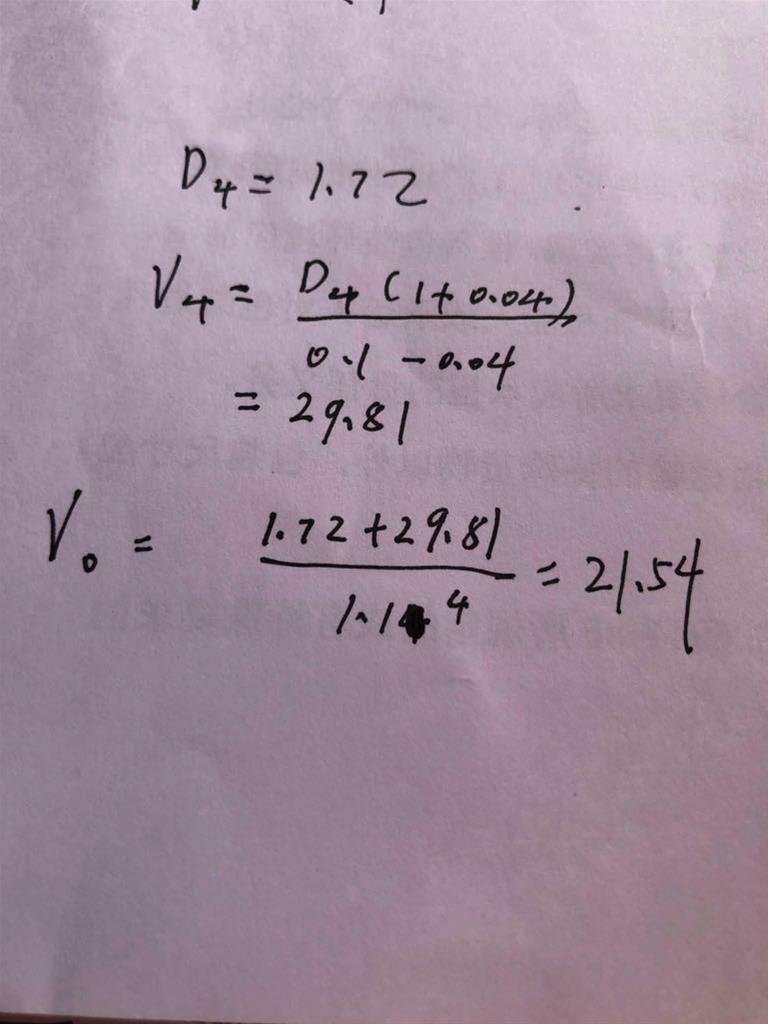 D₄ = 1.72
V₄ = D₄ (1 + 0.04)
0.1 - 0.04
= 29.81
V₀ = 1.72 + 29.81 = 21.54
1.1⁴